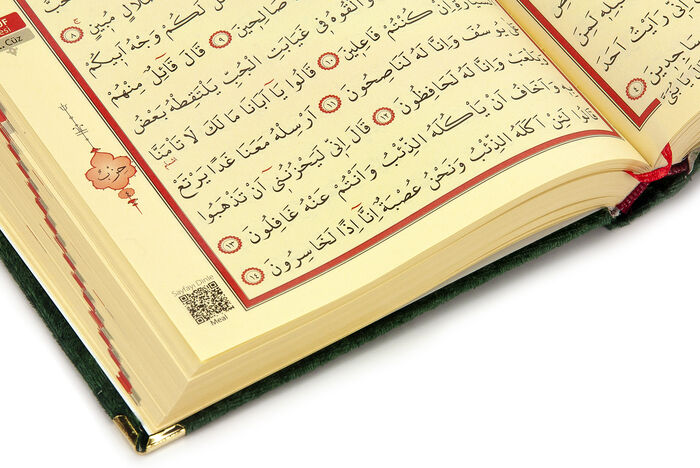 ضَلَالٍ مُب۪ينٍ ٨
لَكُمْ وَجْهُ اَب۪يكُمْ
صَالِح۪ينَ ٩ قَالَ قَٓائِلٌ مِنْهُمْ
اَلْقُوهُ ف۪ي غَيَابَتِ الْجُبِّ يَلْتَقِطْهُ بَعْضُ
اِنْ كُنْتُمْ فَاعِل۪ينَ ١٠ قَالُوا يَٓا اَبَانَا مَا لَكَ لَا تَأْمَنَّا
عَلٰى يُوسُفَ وَاِنَّا لَهُ لَنَاصِحُونَ ١١ اَرْسِلْهُ مَعَنَا غَدًا يَرْتَعْ
وَيَلْعَبْ وَاِنَّا لَهُ لَحَافِظُونَ ١٢ قَالَ اِنّ۪ي لَيَحْزُنُن۪ٓي اَنْ تَذْهَبُوا
بِه۪ وَاَخَافُ اَنْ يَأْكُلَهُ الذِّئْبُ وَاَنْتُمْ عَنْهُ غَافِلُونَ ١٣
قَالُوا لَئِنْ اَكَلَهُ الذِّئْبُ وَنَحْنُ عُصْبَةٌ اِنَّٓا اِذًا لَخَاسِرُونَ ١٤
Cüz
حزب
Sayfayı Dinle
Meal
رَاَيْتُ اَحَدَ
٤